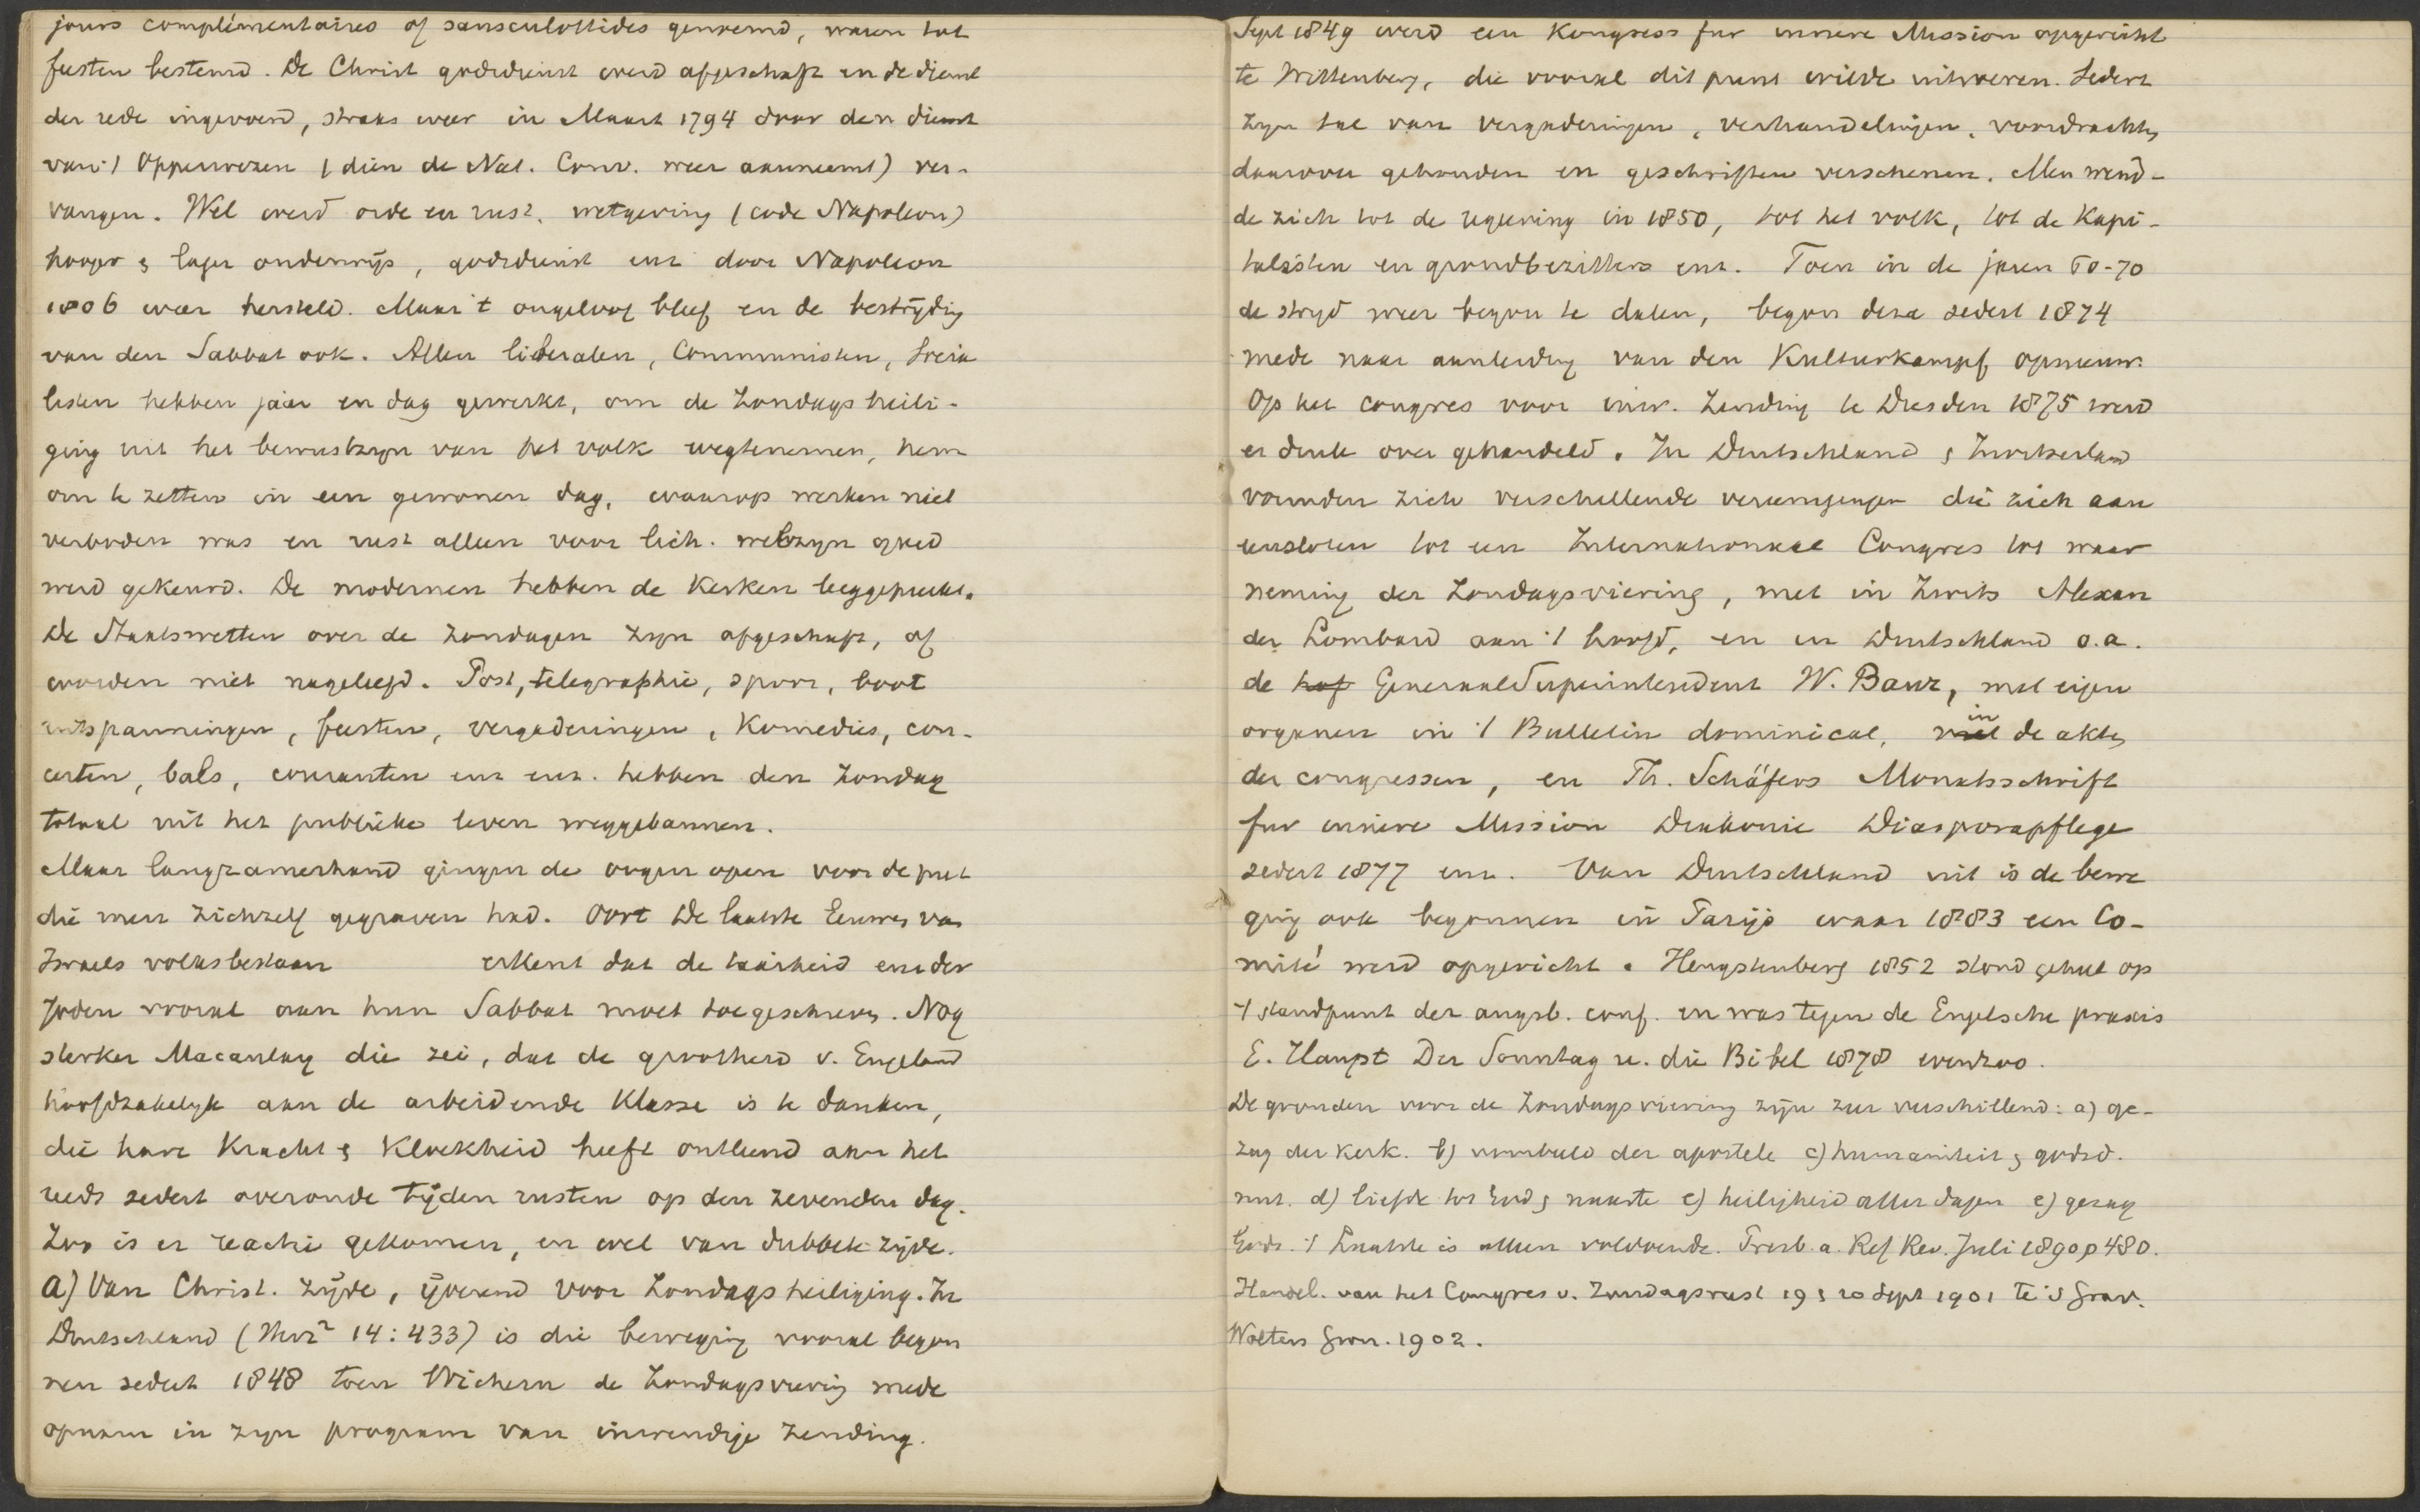 jours complémentaires of sansculottides genoemd, waren tot
feesten bestemd. De Christ godsdienst werd afgeschaft en de dienst
der rede ingevoerd, straks weer in Maart 1794 door den dienst
van 't Opperwezen (dien de Nat. Conv. weer aanneemt) ver-
vangen. Wel werd orde en rust, wetgeving (code Napoleon)
hooger & lager onderwijs, godsdienst enz door Napoleon
1806 weer hersteld. Maar 't ongeloof bleef en de bestrijding
van den Sabbat ook. Allen liberalen, Communisten, Socia
listen hebben jaar en dag gewerkt, om de Zondagsheili-
ging uit het bewustzijn van het volk wegtenemen, hem
om te zetten in een gewonen dag, waarop werken niet
verboden was en rust alleen voor lich. welzijn goed
werd gekeurd. De modernen hebben de Kerken leeggepreekt.
De Staatswetten over de Zondagen zijn afgeschaft, of
worden niet nageleefd. Post, telegraphie, spoor, boot
uitspanningen, feesten, vergaderingen, Komedies, con-
certen, bals, couranten enz enz. hebben den Zondag
totaal uit het publieke leven weggebannen.
Maar langzamerhand gingen de oogen open voor de put
die men zichzelf gegraven had. Oort De laatste Eeuwen van
Israels volksbestaan erkent dat de taaiheid der
Joden vooral aan hun Sabbat moet toegeschreven. Nog
sterker Macaulay die zei, dat de grootheid v. Engeland
hoofdzakelijk aan de arbeidende Klasse is te danken,
die hare Kracht & Kloekheid heeft ontleend aan het
reeds sedert overoude tijden rusten op den zevenden dag.
Zoo is er reactie gekomen, en wel van dubbele zijde.
a) Van Christ. zijde, ijverend voor Zondagsheiliging. In
Duitschland (Herz² 14:433) is die beweging vooral begon
nen sedert 1848 toen Wichern de Zondagsviering mede
opnam in zijn program van inwendige Zending.
Sept 1849 werd een Kongress fur innere Mission opgericht
te Wittenberg, die vooral dit punt wilde uitvoeren. Sedert
zijn tal van vergaderingen, verhandelingen, voordrachten
daarover gehouden en geschriften verschenen. Men wend-
de zich tot de regeering in 1850, tot het volk, tot de Kapi-
talisten en grondbezitters enz. Toen in de jaren 60-70
de strijd weer begon te dalen, begon deze sedert 1874
mede naar aanleiding van den Kulturkampf opnieuw.
Op het congres voor inw. Zending te Dresden 1875 werd
er druk over gehandeld. In Duitschland & Zwitserland
vormden zich verschillende vereenigingen die zich aan
eensloten tot een Internationaal Congres tot waar
neming der Zondagsviering, met in Zwits Alexan
der Lombard aan 't hoofd, en in Duitschland o.a.
de hof GeneraalSuperintendent W. Baur, met eigen
organen in 't Bulletin dominical, in de akten
der congressen, en Th. Schäfers Monatsschrift
fur innere Mission Diakonie Diasporapflege
sedert 1877 enz. Van Duitschland uit is de bewe
ging ook begonnen in Parijs waar 1883 een Co-
mité werd opgericht. Hengstenberg 1852 stond geheel op
't standpunt der augsb. conf. en was tegen de Engelsche praxis
E. Haupt Der Sonntag u. die Bibel 1878 evenzoo.
De gronden voor de Zondagsviering zijn zeer verschillend: a) ge-
zag der Kerk. b) voorbeeld der apostele c) humaniteit & godsd.
nut. d) liefde tot God & naaste e) heiligheid aller dagen e) gezag
Gods. 't Laatste is alleen voldoende. Presb. a. Ref Rev. Juli 1890 p 480.
Handel. van het Congres v. Zondagsrust 19 & 20 Sept 1901 te 's Grav.
Wolters Gron. 1902.